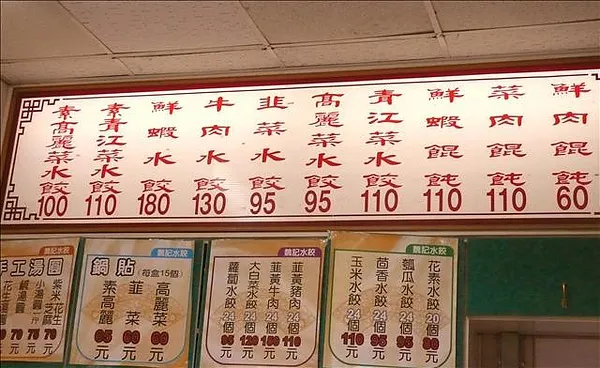 鮮肉餛飩 60
菜肉餛飩 110
鮮蝦餛飩 110
青江菜水餃 110
高麗菜水餃 95
韭菜水餃 95
牛肉水餃 130
鮮蝦水餃 180
素青江菜水餃 110
素高麗菜水餃 100
魏記水餃
花素水餃 20個 元
瓠瓜水餃 24個 95元
茴香水餃 24個 95元
玉米水餃 24個 110元
魏記水餃
韭黃豬肉 24個 110元
韭黃牛肉 24個 150元
大白菜水餃 24個 120元
蘿蔔水餃 24個 95元
魏記水餃
鍋貼 (每盒15個)
高麗菜 60元
韭菜 60元
素高麗 65元
魏記水餃
手工湯圓
紫米花生 70元
小湯圓 元
鹹湯圓 70元